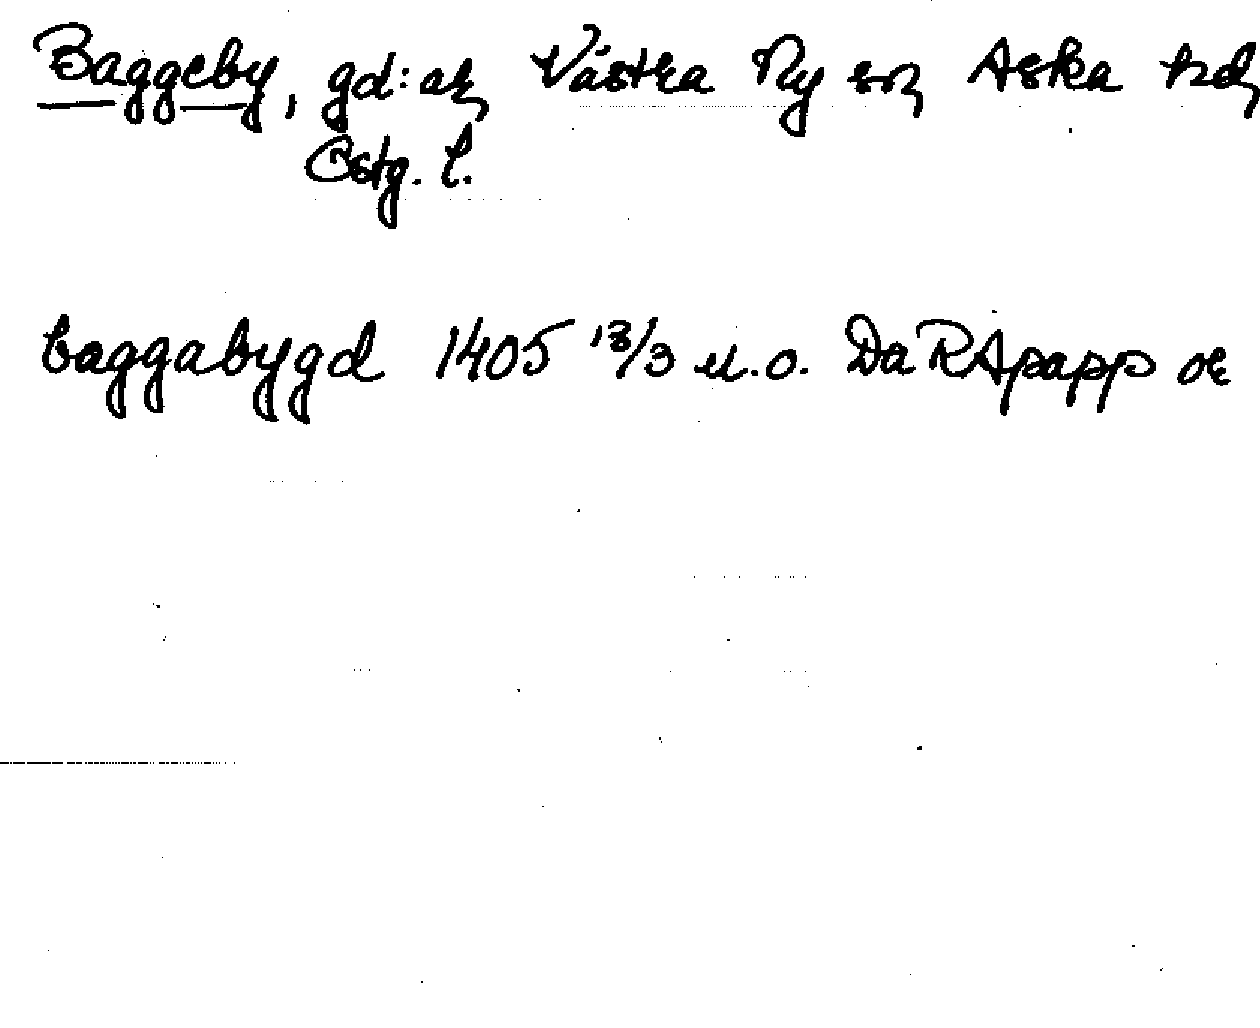 Baggeby, gd:ar, Västra Ny sn, Aska hd,
Östg. l.
baggabygd 1405 13/3 u.o. Da RApapp or